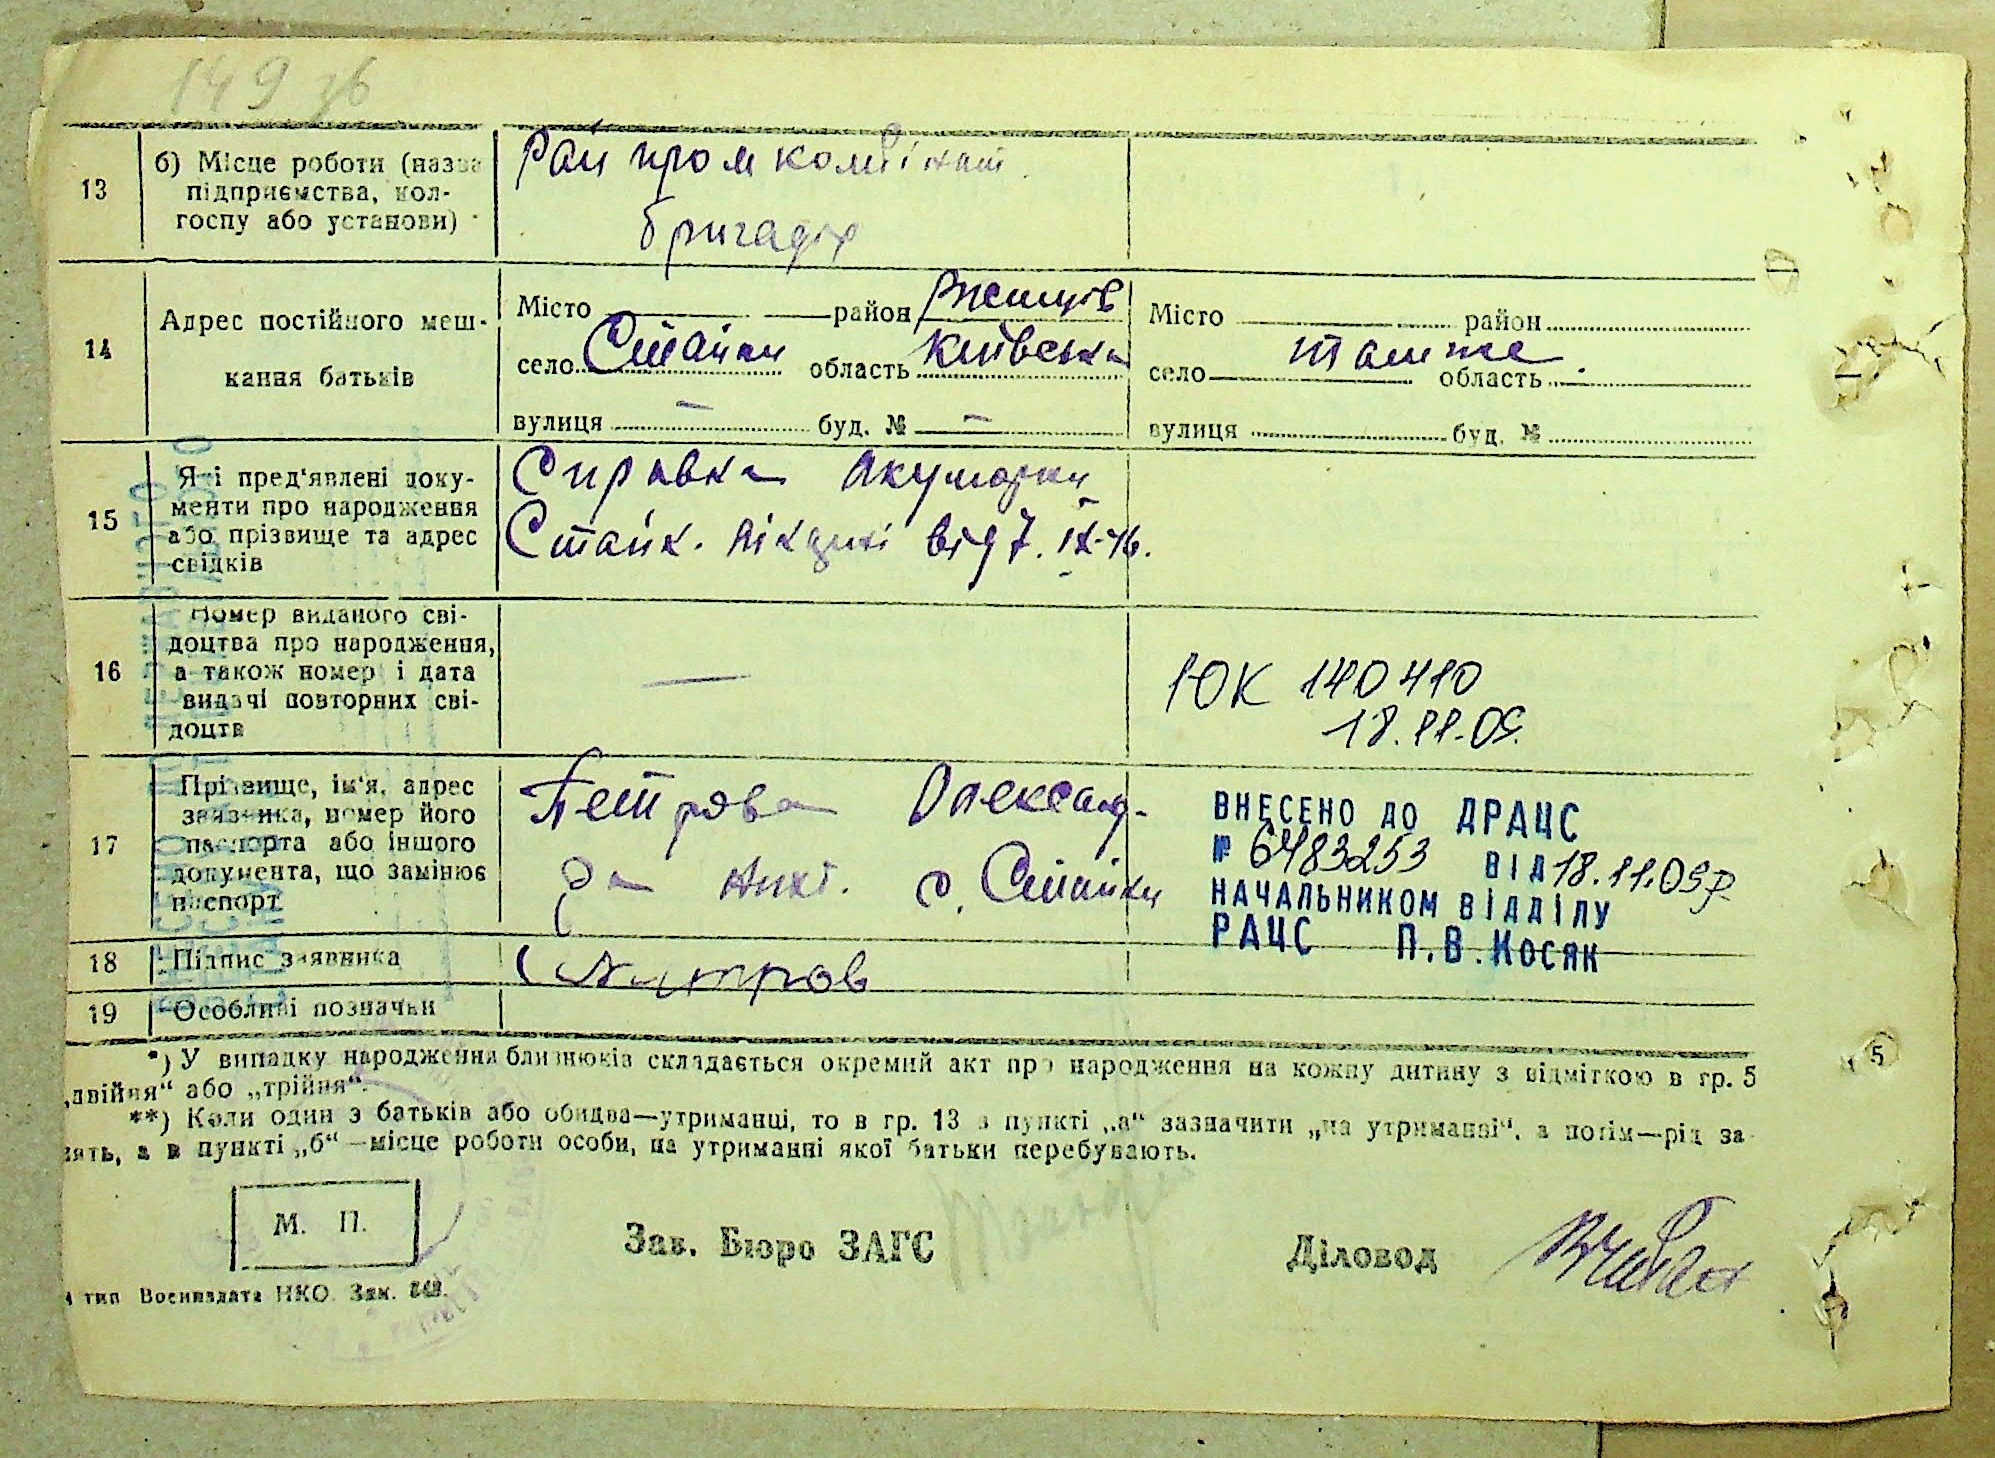 149 зв
13
б) Місце роботи (назва
підприємства, кол-
госпу або установи)
Райпромкомбінат
бригадір
14
Адрес постійного меш-
кання батьків
Місто район Ржищів
село Стайки область Київська
вулиця — буд. № —
Місто район
село также область
вулиця буд. №
15
Які пред'явлені доку-
менти про народження
або прізвище та адрес
свідків
Справка акушорки
Стайк. лікарні від 7.ІХ-46.
16
Номер виданого сві-
доцтва про народження,
а також номер і дата
видачі повторних сві-
доцтв
—
ЮК 140410
18.11.09.
17
Прізвище, ім'я, адрес
заявника, номер його
паспорта або іншого
документа, що замінює
паспорт
Петрова Олександ-
ра с. Стайки
ВНЕСЕНО ДО ДРАЦС
№ 6483253 ВІД 18.11.09р.
НАЧАЛЬНИКОМ ВІДДІЛУ
РАЦС П.В.Косяк
18
Підпис заявника
19
Особливі позначки
*) У випадку народження близнюків складається окремий акт про народження на кожну дитину з відміткою в гр. 5
„двійня“ або „трійня“.
**) Коли один з батьків або обидва—утриманці, то в гр. 13 в пункті „а“ зазначити „на утриманні“, а потім—рід за-
нять, а в пункті „б“—місце роботи особи, на утриманні якої батьки перебувають.
М. П.
Зав. Бюро ЗАГС
Діловод
тип Воениздата НКО. Зак. 849.
5